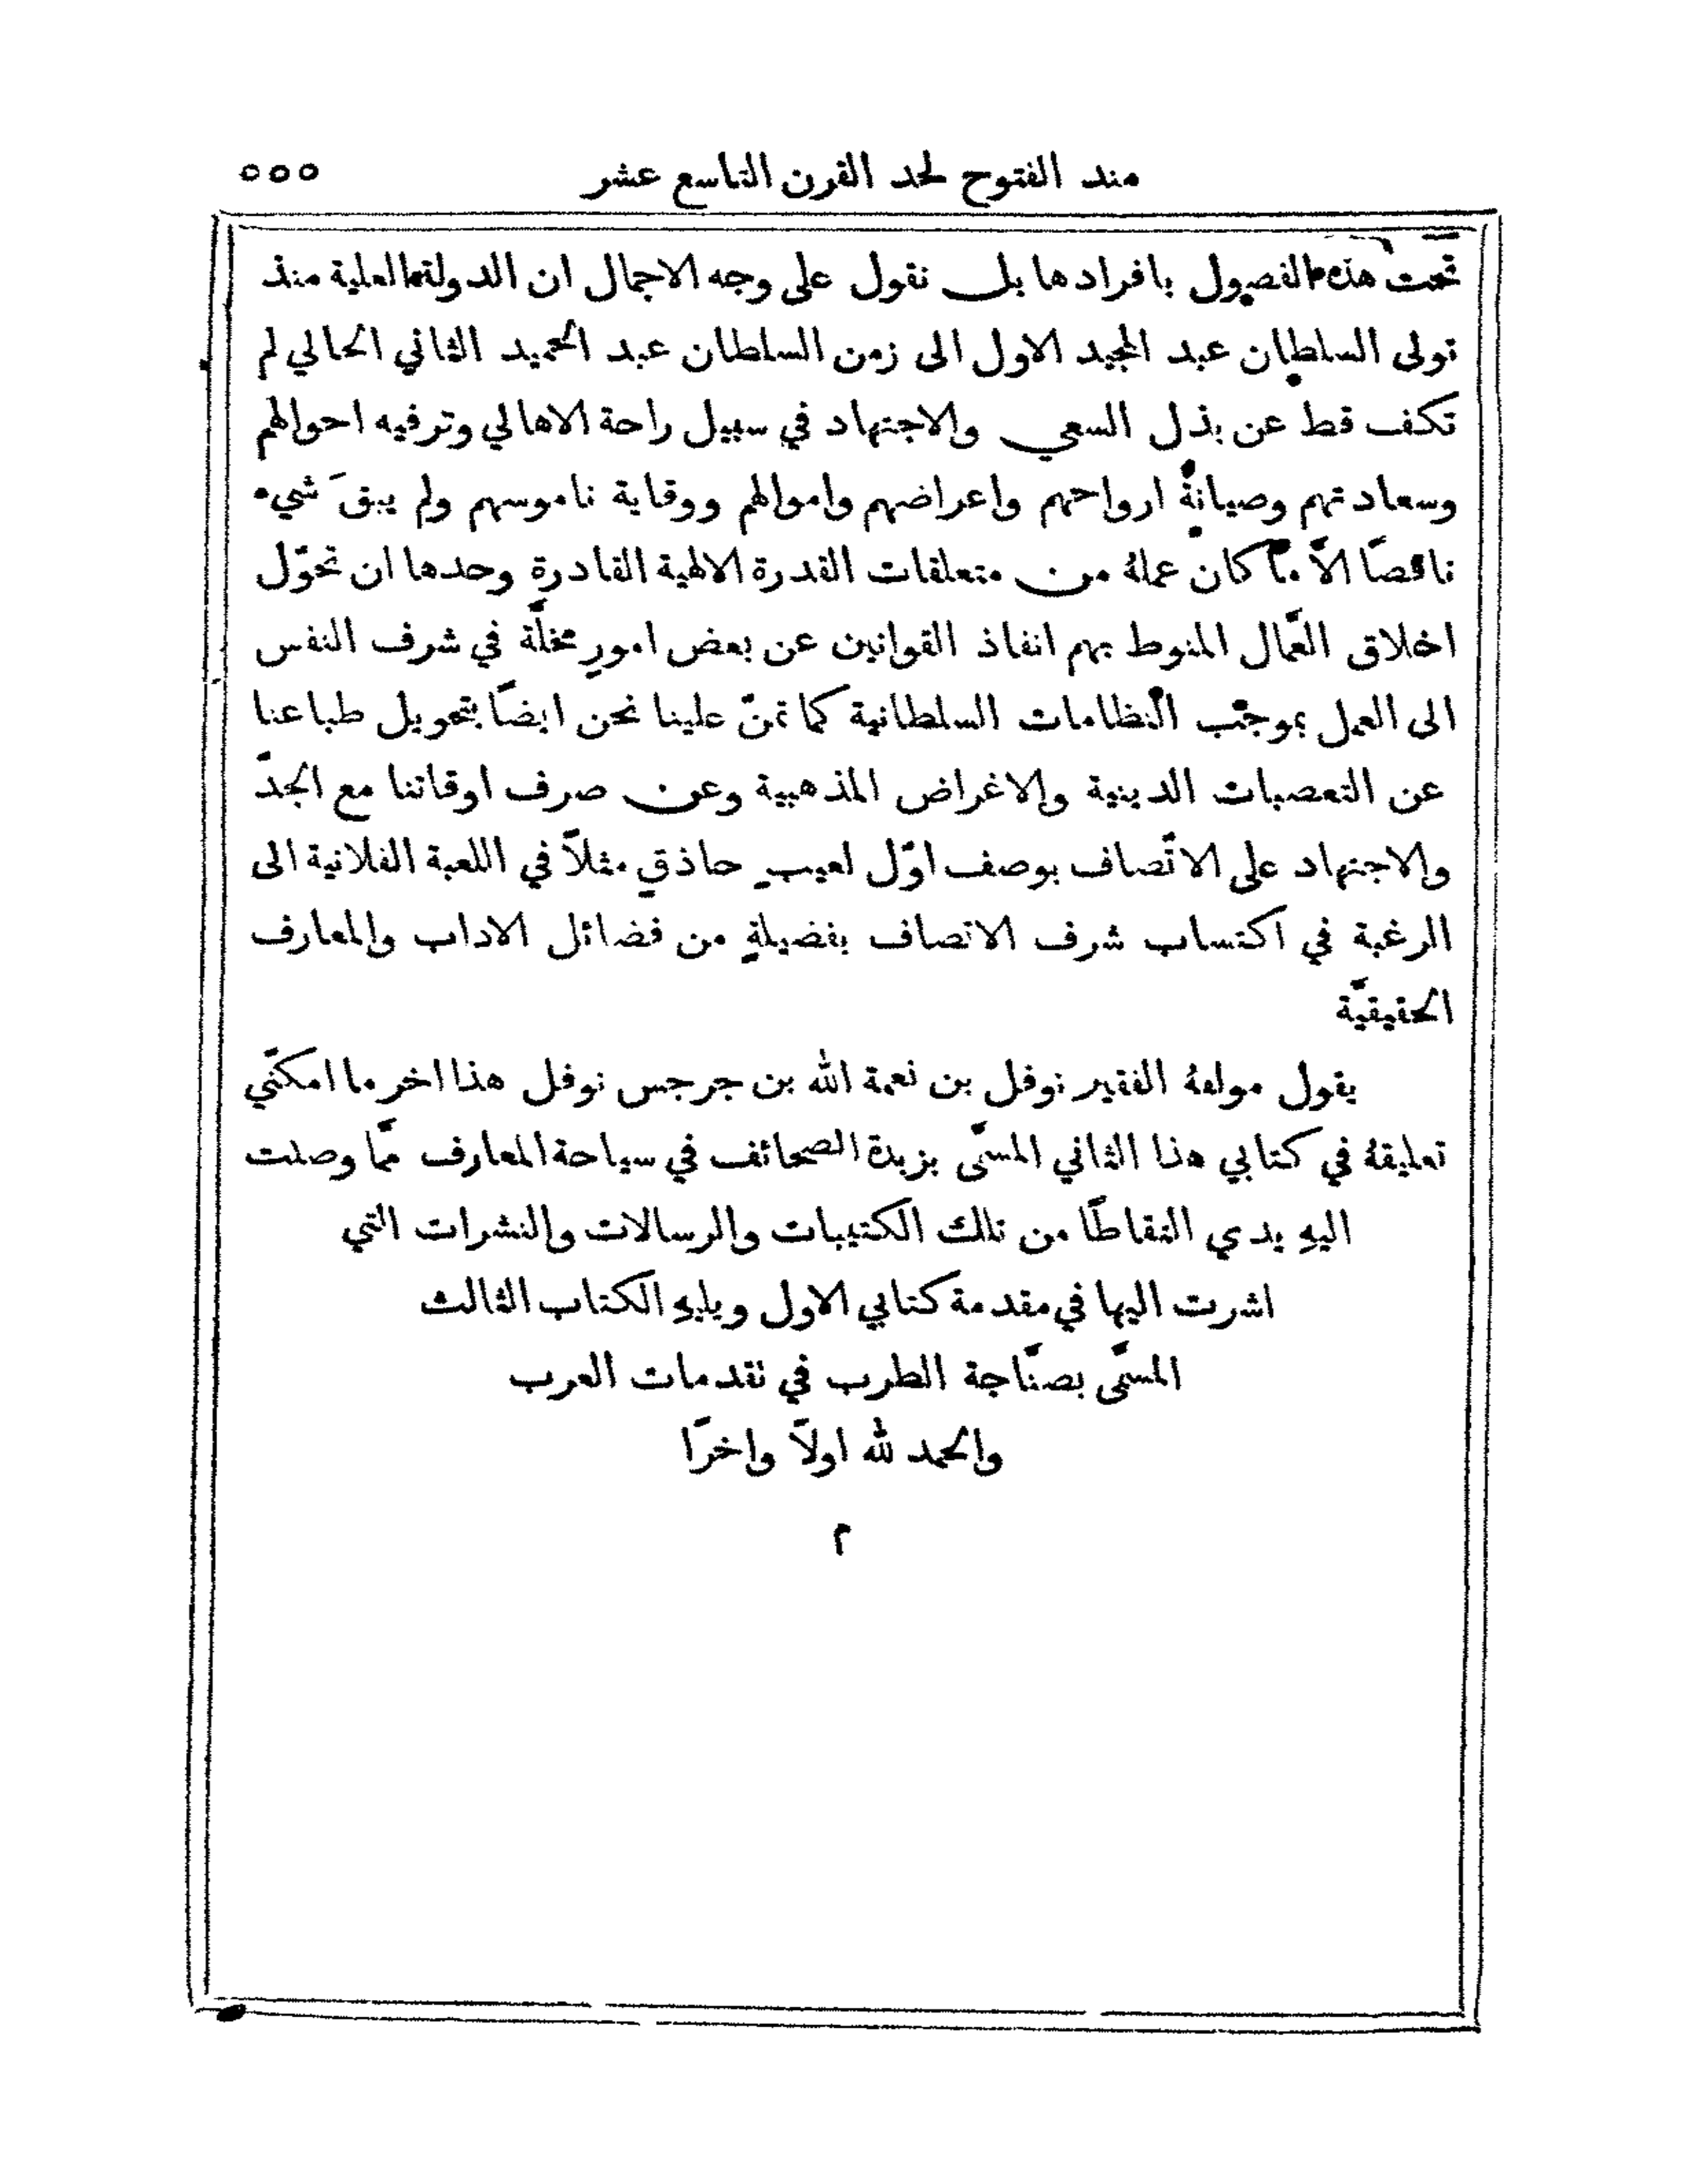 منذ الفتوح لحد القرن التاسع عشر ٥٥٥
تحت هذه الفصول بافرادها بل نقول على وجه الاجمال ان الدولة العلية منذ
تولى السلطان عبد المجيد الاول الى زمن السلطان عبد الحميد الثاني الحالي لم
تكف قط عن بذل السعي والاجتهاد في سبيل راحة الاهالي وترفيه احوالهم
وسعادتهم وصيانة ارواحهم واعراضهم واموالهم ووقاية ناموسهم ولم يبقَ شيء
ناقصًا الاَّ ما كان عملهُ من متعلقات القدرة الالهية القادرة وحدها ان تحوّل
اخلاق العمَّال المنوط بهم انفاذ القوانين عن بعض امورٍ مخلَّة في شرف النفس
الى العمل بموجب النظامات السلطانية كما تمنّ علينا نحن ايضًا بتحويل طباعنا
عن التعصبات الدينية والاغراض المذهبية وعن صرف اوقاتنا مع الجدّ
والاجتهاد على الاتّصاف بوصف اوّل لعيبٍ حاذقٍ مثلاً في اللعبة الفلانية الى
الرغبة في اكتساب شرف الاتصاف بفضيلةٍ من فضائل الاداب والمعارف
الحقيقيَّة
يقول مولفهُ الفقير نوفل بن نعمة الله بن جرجس نوفل هذا اخر ما امكنّي
تعليقهُ في كتابي هذا الثاني المسمَّى بزبدة الصحائف في سياحة المعارف ممَّا وصلت
اليهِ يدي التقاطًا من تلك الكتيبات والرسالات والنشرات التي
اشرت اليها في مقدمة كتابي الاول ويليهِ الكتاب الثالث
المسمَّى بصنَّاجة الطرب في تقدمات العرب
والحمد لله اولاً واخرًا
م